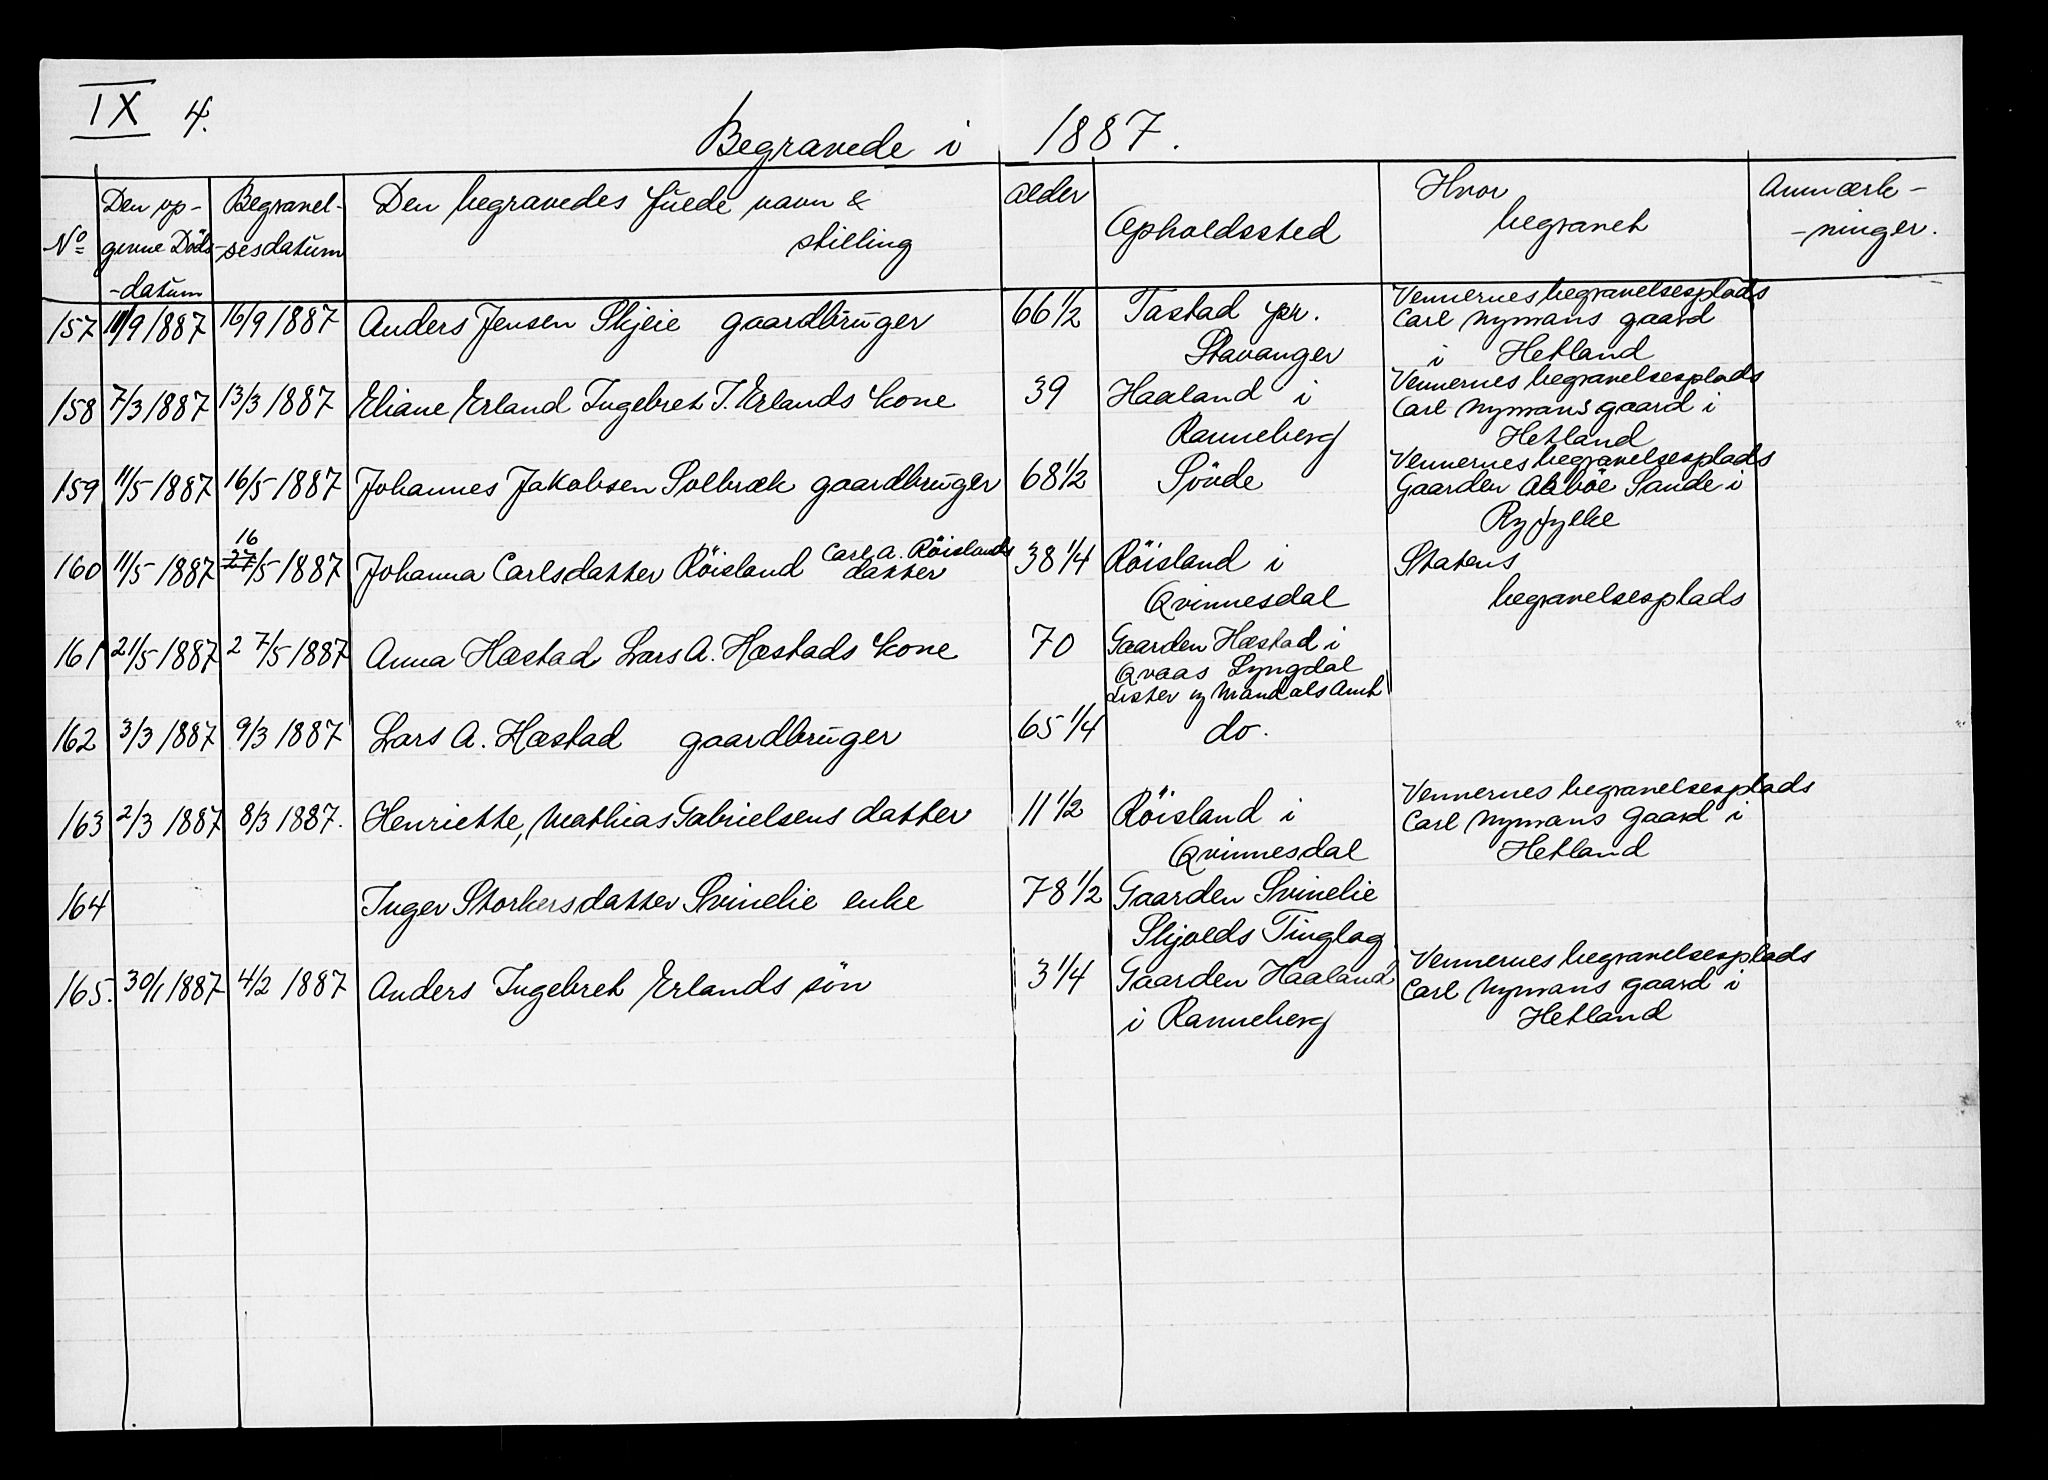 IX 4.
Begravede i 1887.
No Den op- Begravel- Den begravedes fuede navn & alder Opholdssted Hvor Anmærk-
givne Döds- -sesdatum stilling begravet -ninger.
-datum
157 11/9 1887 16/9 1887 Anders Jensen Skjeie gaardbruger 66 1/2 Tastad pr. Vennernes begravelsesplads
Stavanger Carl Nymans gaard
i Hetland
158 7/3 1887 13/3 1887 Eliane Erland Ingebret T. Erlands kone 39 Haaland i Vennernes begravelsesplads
Ranneberg Carl Nymans gaard i
Hetland
159 11/5 1887 16/5 1887 Johannes Jakobsen Solbræk gaardbruger 68 1/2 Sövde Vennernes begravelsesplads
Gaarden Sande i
Ryfylke
16
160 11/5 1887 27/5 1887 Johanna Carlsdatter Röisland Carl A. Röislands 38 1/4 Röisland i Statens
datter Qvinnesdal begravelsesplads
161 21/5 1887 2 7/5 1887 Anna Hæstad Lars A. Hæstads kone 70 Gaarden Hæstad i
Qvaas Lyngdal
Lister og Mandals Amt
162 3/3 1887 9/3 1887 Lars A. Hæstad gaardbruger 65 1/4 do.
163 2/3 1887 8/3 1887. Henriette, Mathias Gabrielsens datter 11 1/2 Röisland i Vennernes begravelsesplads
Qvinnesdal Carl Nymans Gaard i
Hetland
164 Inger Storkersdatter Svinelie enke 78 1/2 Gaarden Svinelie
Skjolds Tinglag
165. 30/1 1887 4/2 1887 Anders Ingebret Erlands sön 3 1/4 Gaarden Haaland Vennernes begravelsesplads
i Ranneberg Carl Nymans gaard i
Hetland